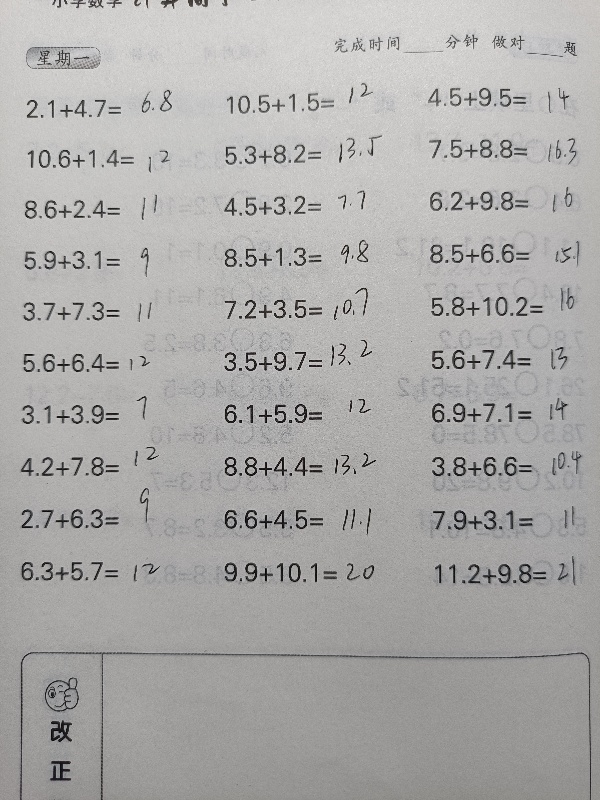 小学数学
星期一
完成时间____分钟 做对____题
2.1+4.7= 6.8 10.5+1.5= 12 4.5+9.5= 14
10.6+1.4= 12 5.3+8.2= 13.5 7.5+8.8= 16.3
8.6+2.4= 11 4.5+3.2= 7.7 6.2+9.8= 16
5.9+3.1= 9 8.5+1.3= 9.8 8.5+6.6= 15.1
3.7+7.3= 11 7.2+3.5= 10.7 5.8+10.2= 16
5.6+6.4= 12 3.5+9.7= 13.2 5.6+7.4= 13
3.1+3.9= 7 6.1+5.9= 12 6.9+7.1= 14
4.2+7.8= 12 8.8+4.4= 13.2 3.8+6.6= 10.4
2.7+6.3= 9 6.6+4.5= 11.1 7.9+3.1= 11
6.3+5.7= 12 9.9+10.1= 20 11.2+9.8= 21
改
正